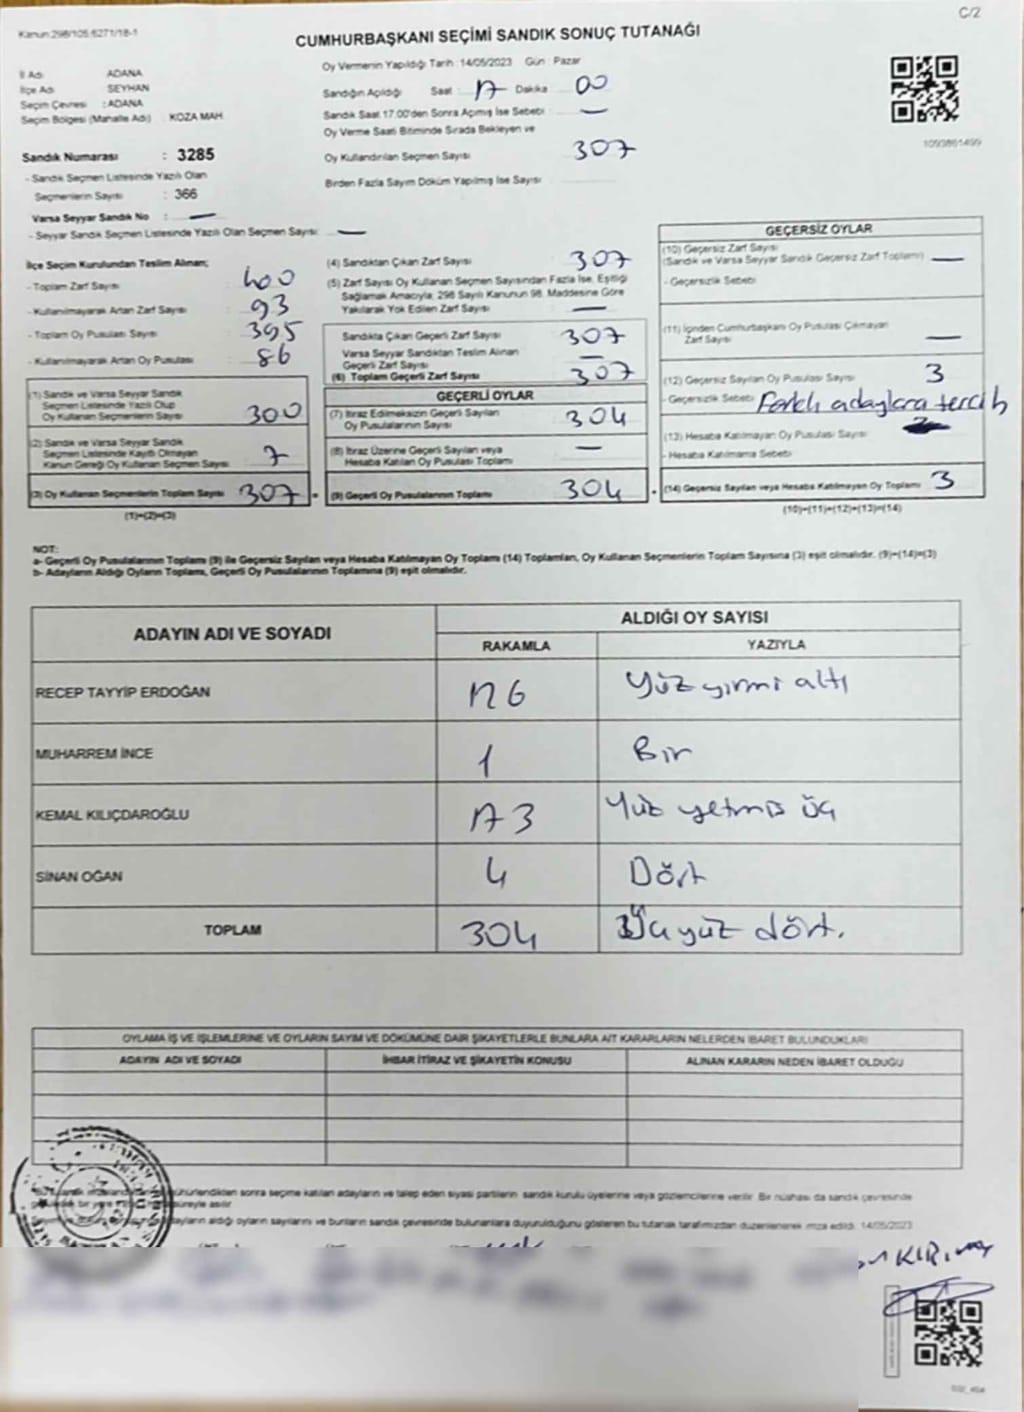 C/2
Kanun:298/105:6271/18-1
CUMHURBAŞKANI SEÇİMİ SANDIK SONUÇ TUTANAĞI
İl Adı : ADANA
İlçe Adı : SEYHAN
Seçim Çevresi : ADANA
Seçim Bölgesi (Mahalle Adı) : KOZA MAH.
Sandık Numarası : 3285
- Sandık Seçmen Listesinde Yazılı Olan
Seçmenlerin Sayısı : 366
Varsa Seyyar Sandık No : —
- Seyyar Sandık Seçmen Listesinde Yazılı Olan Seçmen Sayısı: —
Oy Vermenin Yapıldığı Tarih : 14/05/2023 Gün : Pazar
Sandığın Açıldığı Saat : 17 Dakika : 00
Sandık Saat 17.00'den Sonra Açılmış İse Sebebi : —
Oy Verme Saati Bitiminde Sırada Bekleyen ve
Oy Kullandırılan Seçmen Sayısı : 307
Birden Fazla Sayım Döküm Yapılmış İse Sayısı :
1093861499
İlçe Seçim Kurulundan Teslim Alınan;
- Toplam Zarf Sayısı : 400
- Kullanılmayarak Artan Zarf Sayısı : 93
- Toplam Oy Pusulası Sayısı : 395
- Kullanılmayarak Artan Oy Pusulası : 86
(1) Sandık ve Varsa Seyyar Sandık
Seçmen Listesinde Yazılı Olup
Oy Kullanan Seçmenlerin Sayısı : 300
(2) Sandık ve Varsa Seyyar Sandık
Seçmen Listesinde Kayıtlı Olmayan
Kanun Gereği Oy Kullanan Seçmen Sayısı : 7
(3) Oy Kullanan Seçmenlerin Toplam Sayısı : 307
(1)+(2)=(3)
(4) Sandıktan Çıkan Zarf Sayısı : 307
(5) Zarf Sayısı Oy Kullanan Seçmen Sayısından Fazla İse, Eşitliği
Sağlamak Amacıyla; 298 Sayılı Kanunun 98. Maddesine Göre
Yakılarak Yok Edilen Zarf Sayısı : —
Sandıkta Çıkan Geçerli Zarf Sayısı : 307
Varsa Seyyar Sandıktan Teslim Alınan
Geçerli Zarf Sayısı : —
(6) Toplam Geçerli Zarf Sayısı : 307
GEÇERLİ OYLAR
(7) İtiraz Edilmeksizin Geçerli Sayılan
Oy Pusulalarının Sayısı : 304
(8) İtiraz Üzerine Geçerli Sayılan veya
Hesaba Katılan Oy Pusulası Toplamı : —
(9) Geçerli Oy Pusulalarının Toplamı : 304
GEÇERSİZ OYLAR
(10) Geçersiz Zarf Sayısı
(Sandık ve Varsa Seyyar Sandık Geçersiz Zarf Toplamı) : —
- Geçersizlik Sebebi :
(11) İçinden Cumhurbaşkanı Oy Pusulası Çıkmayan
Zarf Sayısı : —
(12) Geçersiz Sayılan Oy Pusulası Sayısı : 3
- Geçersizlik Sebebi : Farklı adaylara tercih
(13) Hesaba Katılmayan Oy Pusulası Sayısı :
- Hesaba Katılmama Sebebi :
(14) Geçersiz Sayılan veya Hesaba Katılmayan Oy Toplamı : 3
(10)+(11)+(12)+(13)=(14)
NOT:
a- Geçerli Oy Pusulalarının Toplamı (9) ile Geçersiz Sayılan veya Hesaba Katılmayan Oy Toplamı (14) Toplamları, Oy Kullanan Seçmenlerin Toplam Sayısına (3) eşit olmalıdır. (9)+(14)=(3)
b- Adayların Aldığı Oyların Toplamı, Geçerli Oy Pusulalarının Toplamına (9) eşit olmalıdır.
ADAYIN ADI VE SOYADI
ALDIĞI OY SAYISI
RAKAMLA YAZIYLA
RECEP TAYYİP ERDOĞAN 126 Yüz yirmi altı
MUHARREM İNCE 1 Bir
KEMAL KILIÇDAROĞLU 173 Yüz yetmiş üç
SİNAN OĞAN 4 Dört
TOPLAM 304 Üçyüz dört.
OYLAMA İŞ VE İŞLEMLERİNE VE OYLARIN SAYIM VE DÖKÜMÜNE DAİR ŞİKAYETLERLE BUNLARA AİT KARARLARIN NELERDEN İBARET BULUNDUKLARI
ADAYIN ADI VE SOYADI İHBAR İTİRAZ VE ŞİKAYETİN KONUSU ALINAN KARARIN NEDEN İBARET OLDUĞU
mühürlendikten sonra seçime katılan adayların ve talep eden siyasi partilerin sandık kurulu üyelerine veya gözlemcilerine verilir. Bir nüshası da sandık çevresinde
süreyle asılır
adayların aldığı oyların sayılarını ve bunların sandık çevresinde bulunanlara duyurulduğunu gösteren bu tutanak tarafımızdan düzenlenerek imza edildi. 14/05/2023